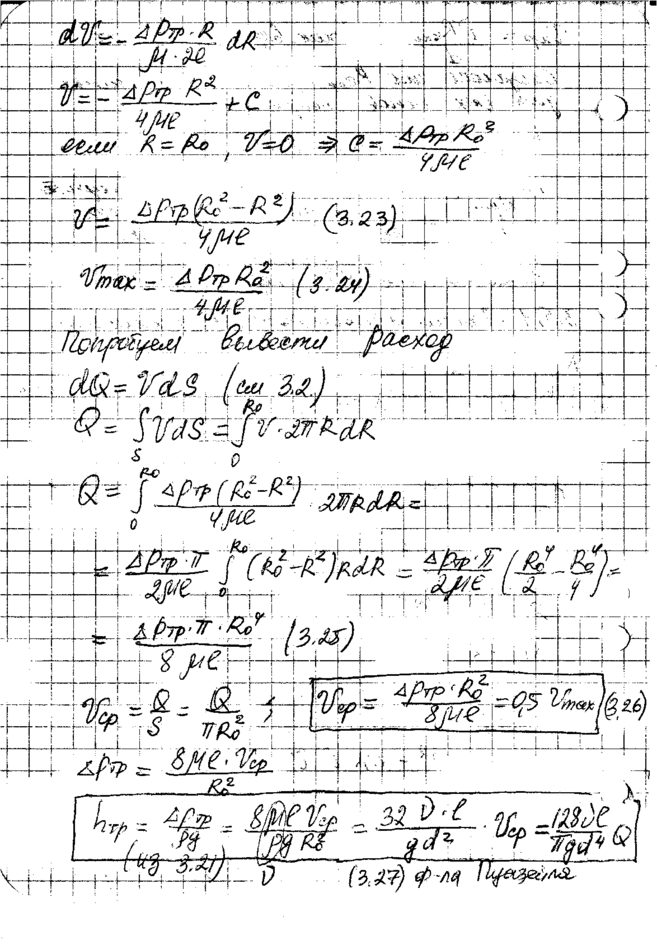 dV = - ΔPтр · R / μ · 2ℓ dR
V = - ΔPтр R² / 4μℓ + C
если R = R₀, V=0 ⇒ C = Δpтр R₀² / 4μℓ
V = Δpтр(R₀² - R²) / 4μℓ (3.23)
Vmax = Δpтр R₀² / 4μℓ (3.24)
Попробуем вывести расход
dQ = VdS (см 3.2)
Q = ∫S VdS = ∫₀^R₀ V · 2πRdR
Q = ∫₀^R₀ Δpтр (R₀² - R²) / 4μℓ 2πRdR =
= Δpтр · π / 2μℓ ∫₀^R₀ (R₀² - R²) R dR = Δpтр · π / 2μℓ (R₀⁴/2 - R₀⁴/4) =
= Δpтр · π · R₀⁴ / 8μℓ (3.25)
Vср = Q/S = Q/πR₀² ; Vср = Δpтр · R₀² / 8μℓ = 0,5 Vmax (3.26)
Δpтр = 8μℓ · Vср / R₀²
hтр = Δpтр/ρg = 8μℓ Vср / ρg R₀² = 32 ν · ℓ / gd² · Vср = 128νℓ / πgd⁴ Q
(из 3.21) ν (3.27) ф-ла Пуазейля